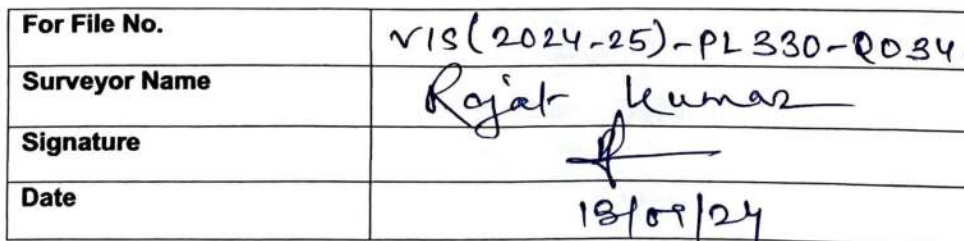 For File No. VIS(2024-25)-PL330-Q034
Surveyor Name Rajat Kumar
Signature
Date